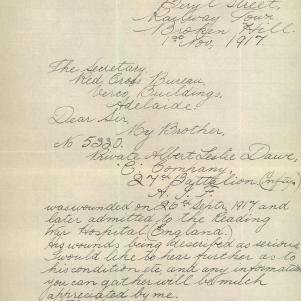 Beryl Street,
Railway Town
Broken Hill.
1st Nov, 1917.
The Secretary,
Red Cross Bureau,
Verco Buildings,
Adelaide.
Dear Sir,
My Brother,
No 5330.
Private Albert Leslie Dawe,
"C" Company,
27th Battalion (Infty)
A.I.F.
was wounded on 26th Septr, 1917 and
later admitted to the Reading
War Hospital (England.)
His wounds being described as serious
I would like to hear further as to
his condition etc and any information
you can gather will be much
appreciated by me.